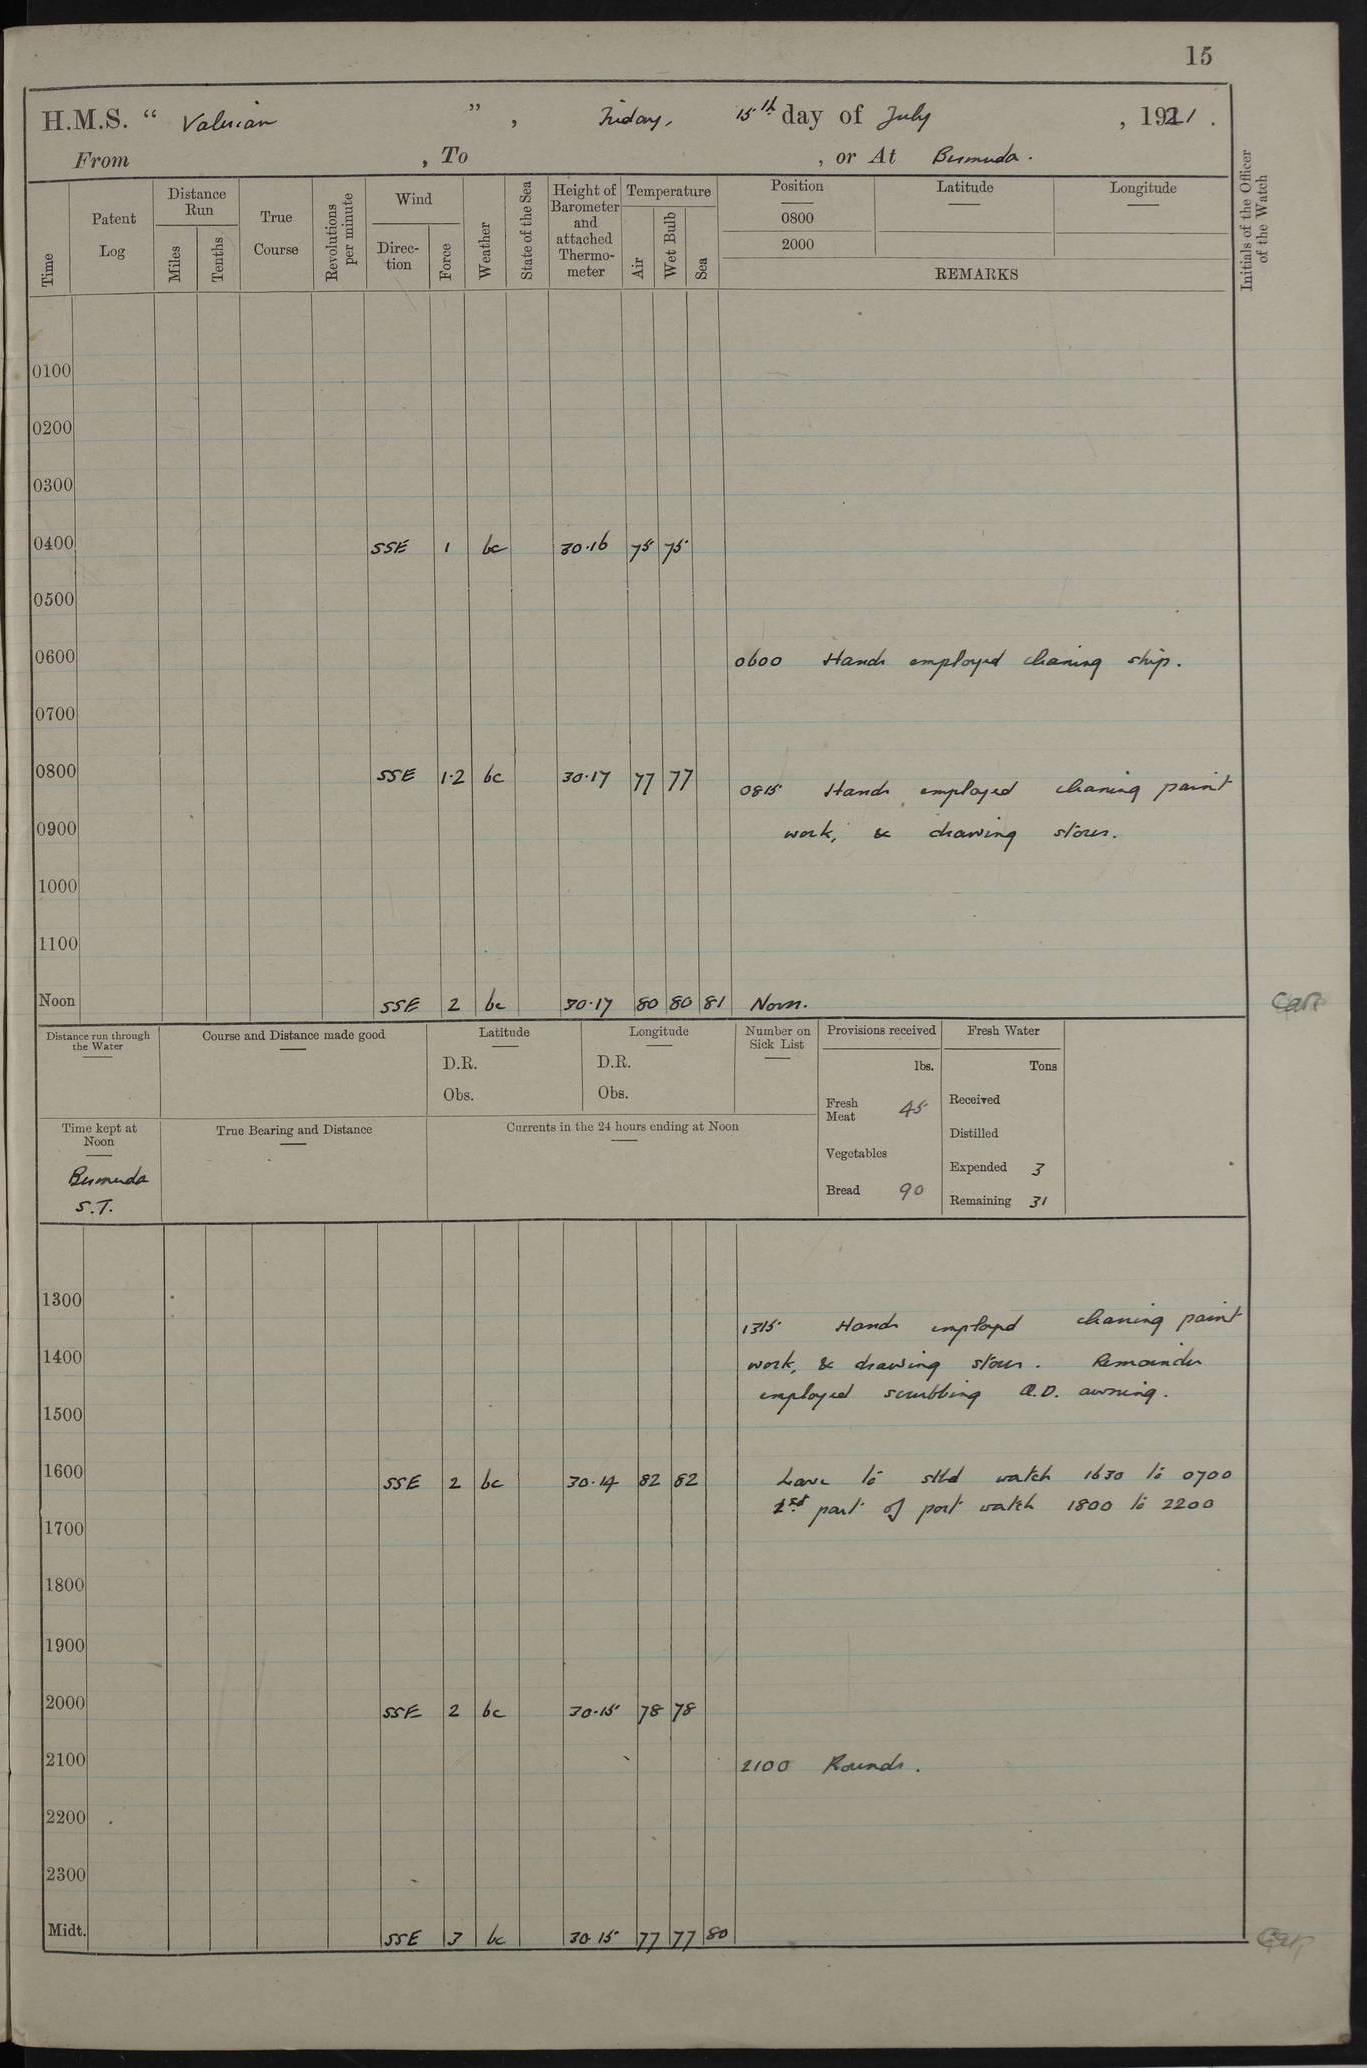 15
H.M.S. “ Valerian ” , Friday, 15th day of July , 1921 .
From , To , or At Bermuda .
Time
Patent Log
Distance Run
Miles
Tenths
True Course
Revolutions per minute
Wind
Direc-tion
Force
Weather
State of the Sea
Height of Barometer and attached Thermo-meter
Temperature
Air
Wet Bulb
Sea
Position
0800
2000
Latitude
Longitude
REMARKS
Initials of the Officer of the Watch
0100
0200
0300
0400 SSE 1 bc 30.16 75 75
0500
0600 0600 Hands employed cleaning ship.
0700
0800 SSE 1.2 bc 30.17 77 77
0815 Hands employed cleaning paint
0900 work, & drawing stores.
1000
1100
Noon SSE 2 bc 30.17 80 80 81 Noon.
Distance run through the Water
Course and Distance made good
Latitude
D.R.
Obs.
Longitude
D.R.
Obs.
Number on Sick List
Provisions received
lbs.
Fresh Meat 45
Vegetables
Bread 90
Fresh Water
Tons
Received
Distilled
Expended 3
Remaining 31
Time kept at Noon
Bermuda
S.T.
True Bearing and Distance
Currents in the 24 hours ending at Noon
1300
1315 Hands employed cleaning paint
1400 work, & drawing stores. Remainder
employed scrubbing Q.D. awning.
1500
1600 SSE 2 bc 30.14 82 82 Leave to stbd watch 1630 to 0700
1st part of port watch 1800 to 2200
1700
1800
1900
2000 SSE 2 bc 30.15 78 78
2100 2100 Rounds.
2200
2300
Midt. SSE 3 bc 30.15 77 77 80